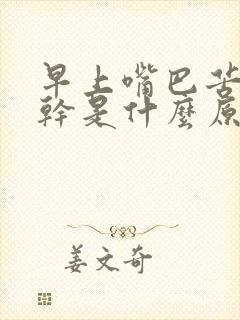 早上嘴巴苦
幹是什麼原
姜文奇